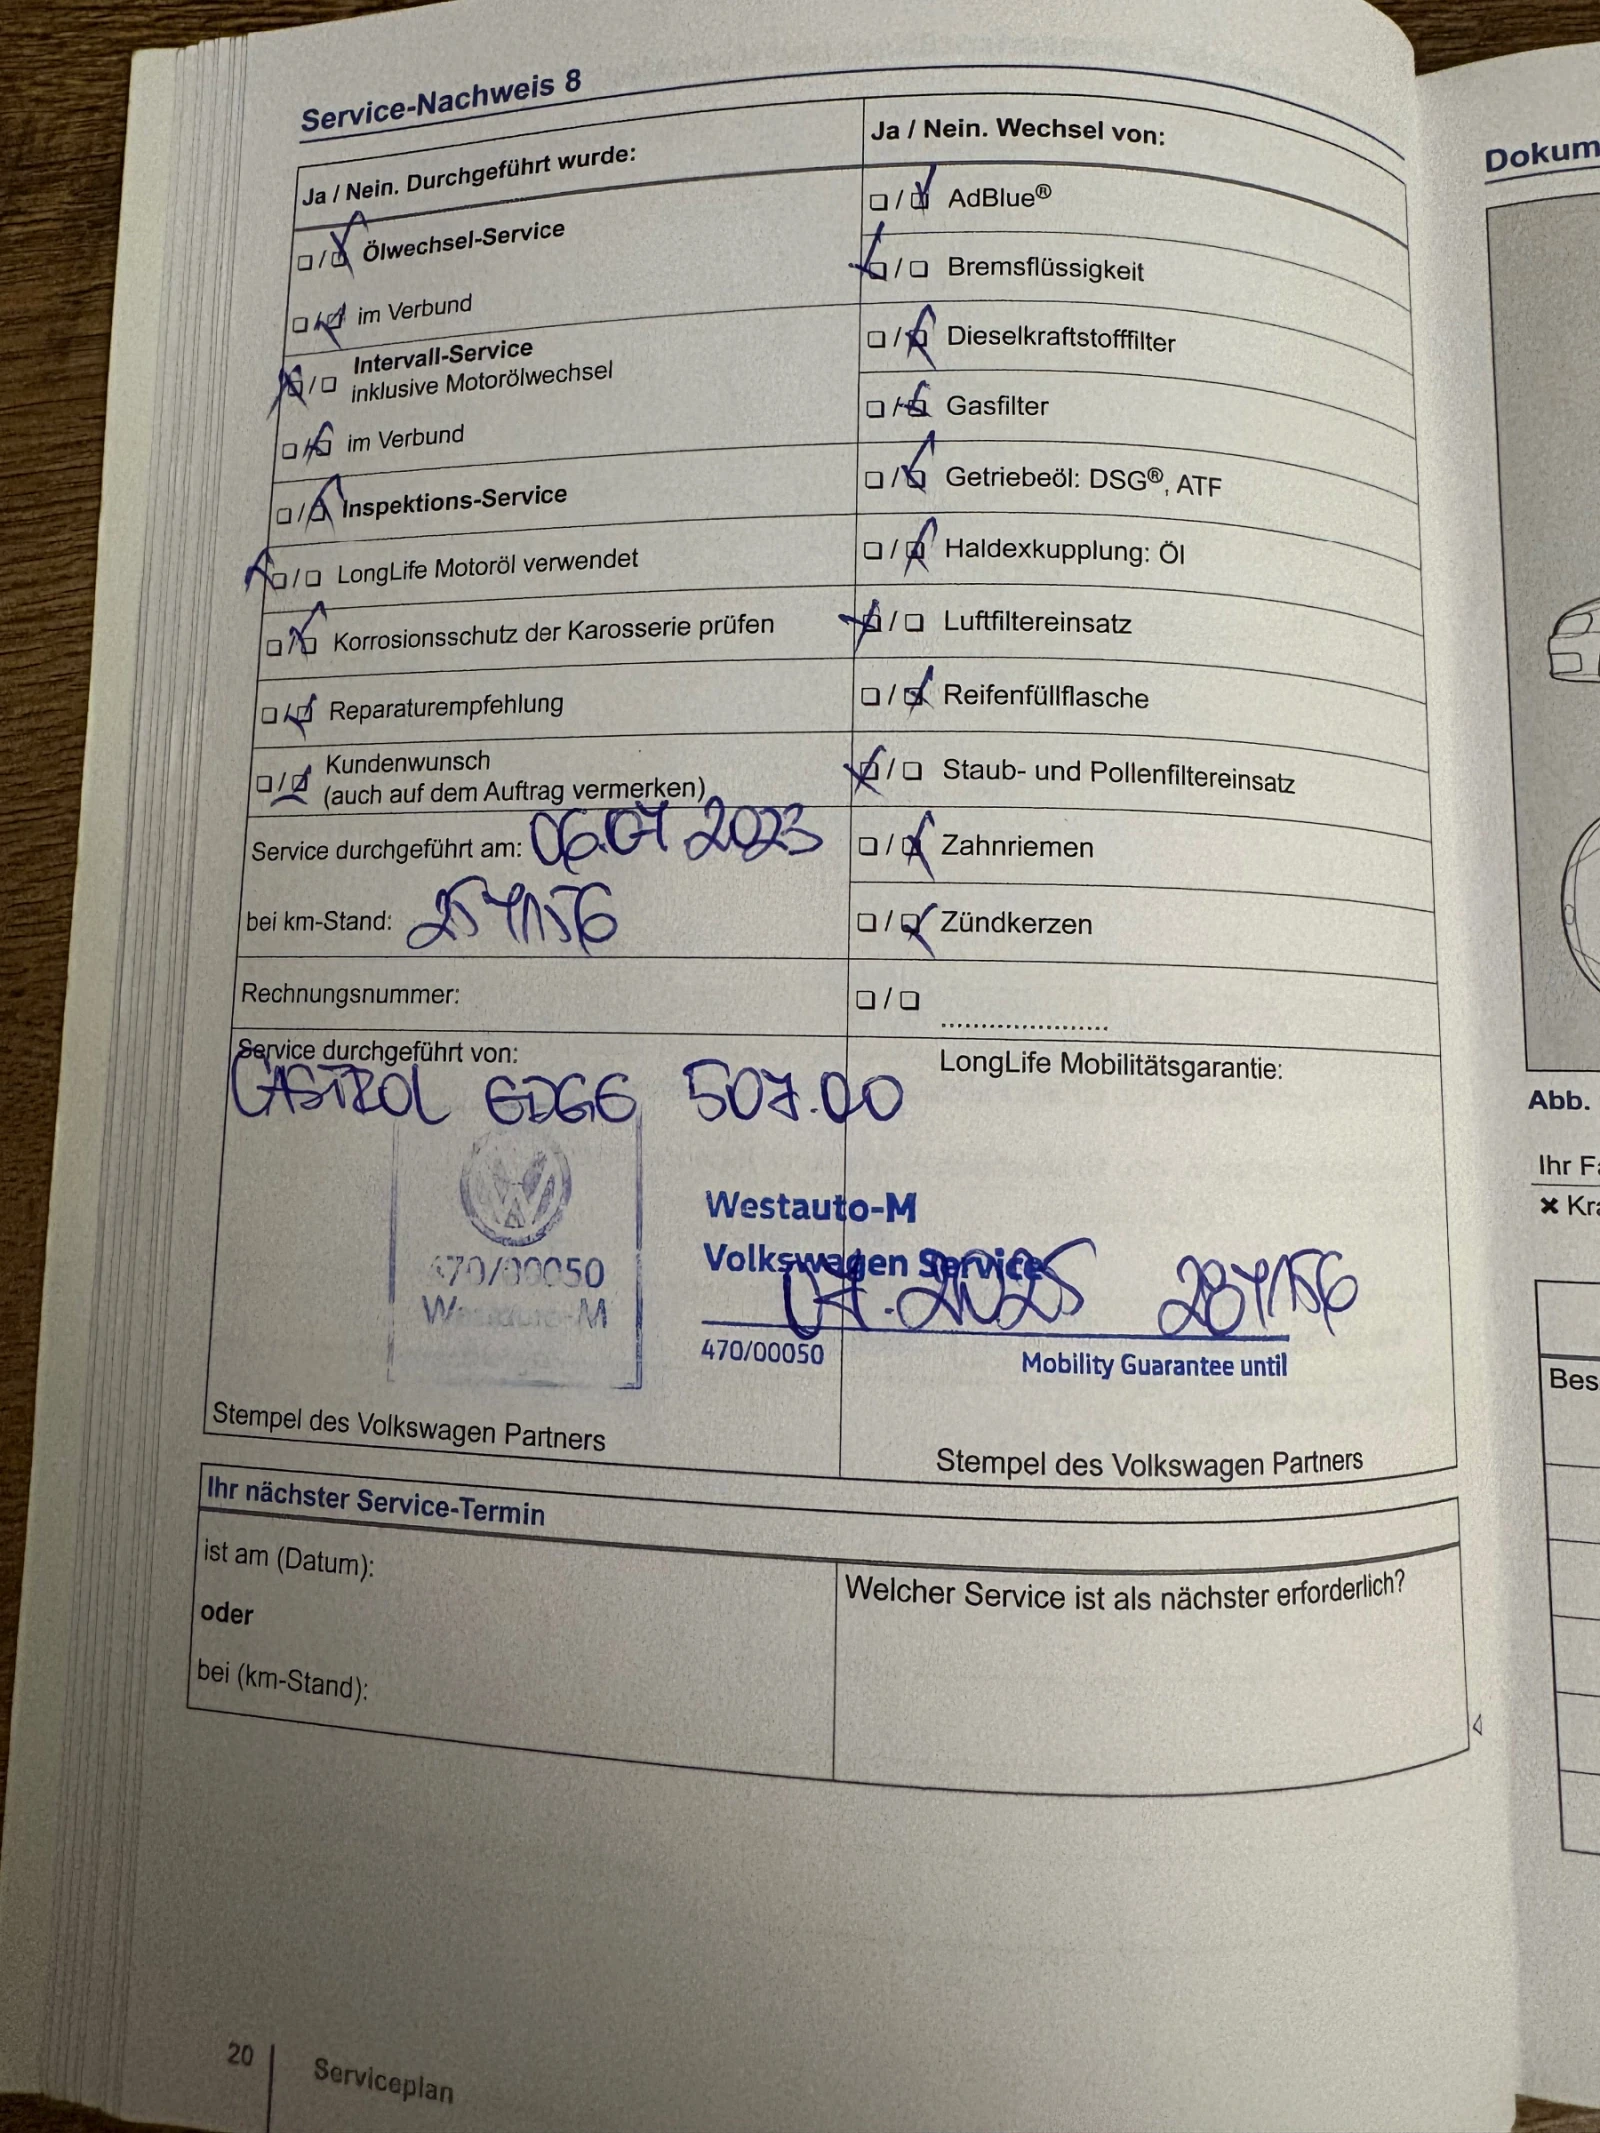 Service-Nachweis 8
Ja / Nein. Durchgeführt wurde:
☐/☑ Ölwechsel-Service
☐/☑ im Verbund
☑/☐ Intervall-Service
inklusive Motorölwechsel
☐/☑ im Verbund
☐/☑ Inspektions-Service
☑/☐ LongLife Motoröl verwendet
☐/☑ Korrosionsschutz der Karosserie prüfen
☐/☑ Reparaturempfehlung
☐/☑ Kundenwunsch
(auch auf dem Auftrag vermerken)
Service durchgeführt am: 06.07 2023
bei km-Stand: 257156
Rechnungsnummer:
Ja / Nein. Wechsel von:
☐/☑ AdBlue®
☑/☐ Bremsflüssigkeit
☐/☑ Dieselkraftstofffilter
☐/☑ Gasfilter
☐/☑ Getriebeöl: DSG®, ATF
☐/☑ Haldexkupplung: Öl
☑/☐ Luftfiltereinsatz
☐/☑ Reifenfüllflasche
☑/☐ Staub- und Pollenfiltereinsatz
☐/☑ Zahnriemen
☐/☑ Zündkerzen
☐/☐ ......................
Service durchgeführt von:
CASTROL EDGE 507.00
470/00050
Westauto-M
Stempel des Volkswagen Partners
LongLife Mobilitätsgarantie:
Westauto-M
Volkswagen Service
07.2025 287156
470/00050
Mobility Guarantee until
Stempel des Volkswagen Partners
Ihr nächster Service-Termin
ist am (Datum):
oder
bei (km-Stand):
Welcher Service ist als nächster erforderlich?
20 | Serviceplan
Dokum
Abb.
Ihr Fa
× Kra
Bes